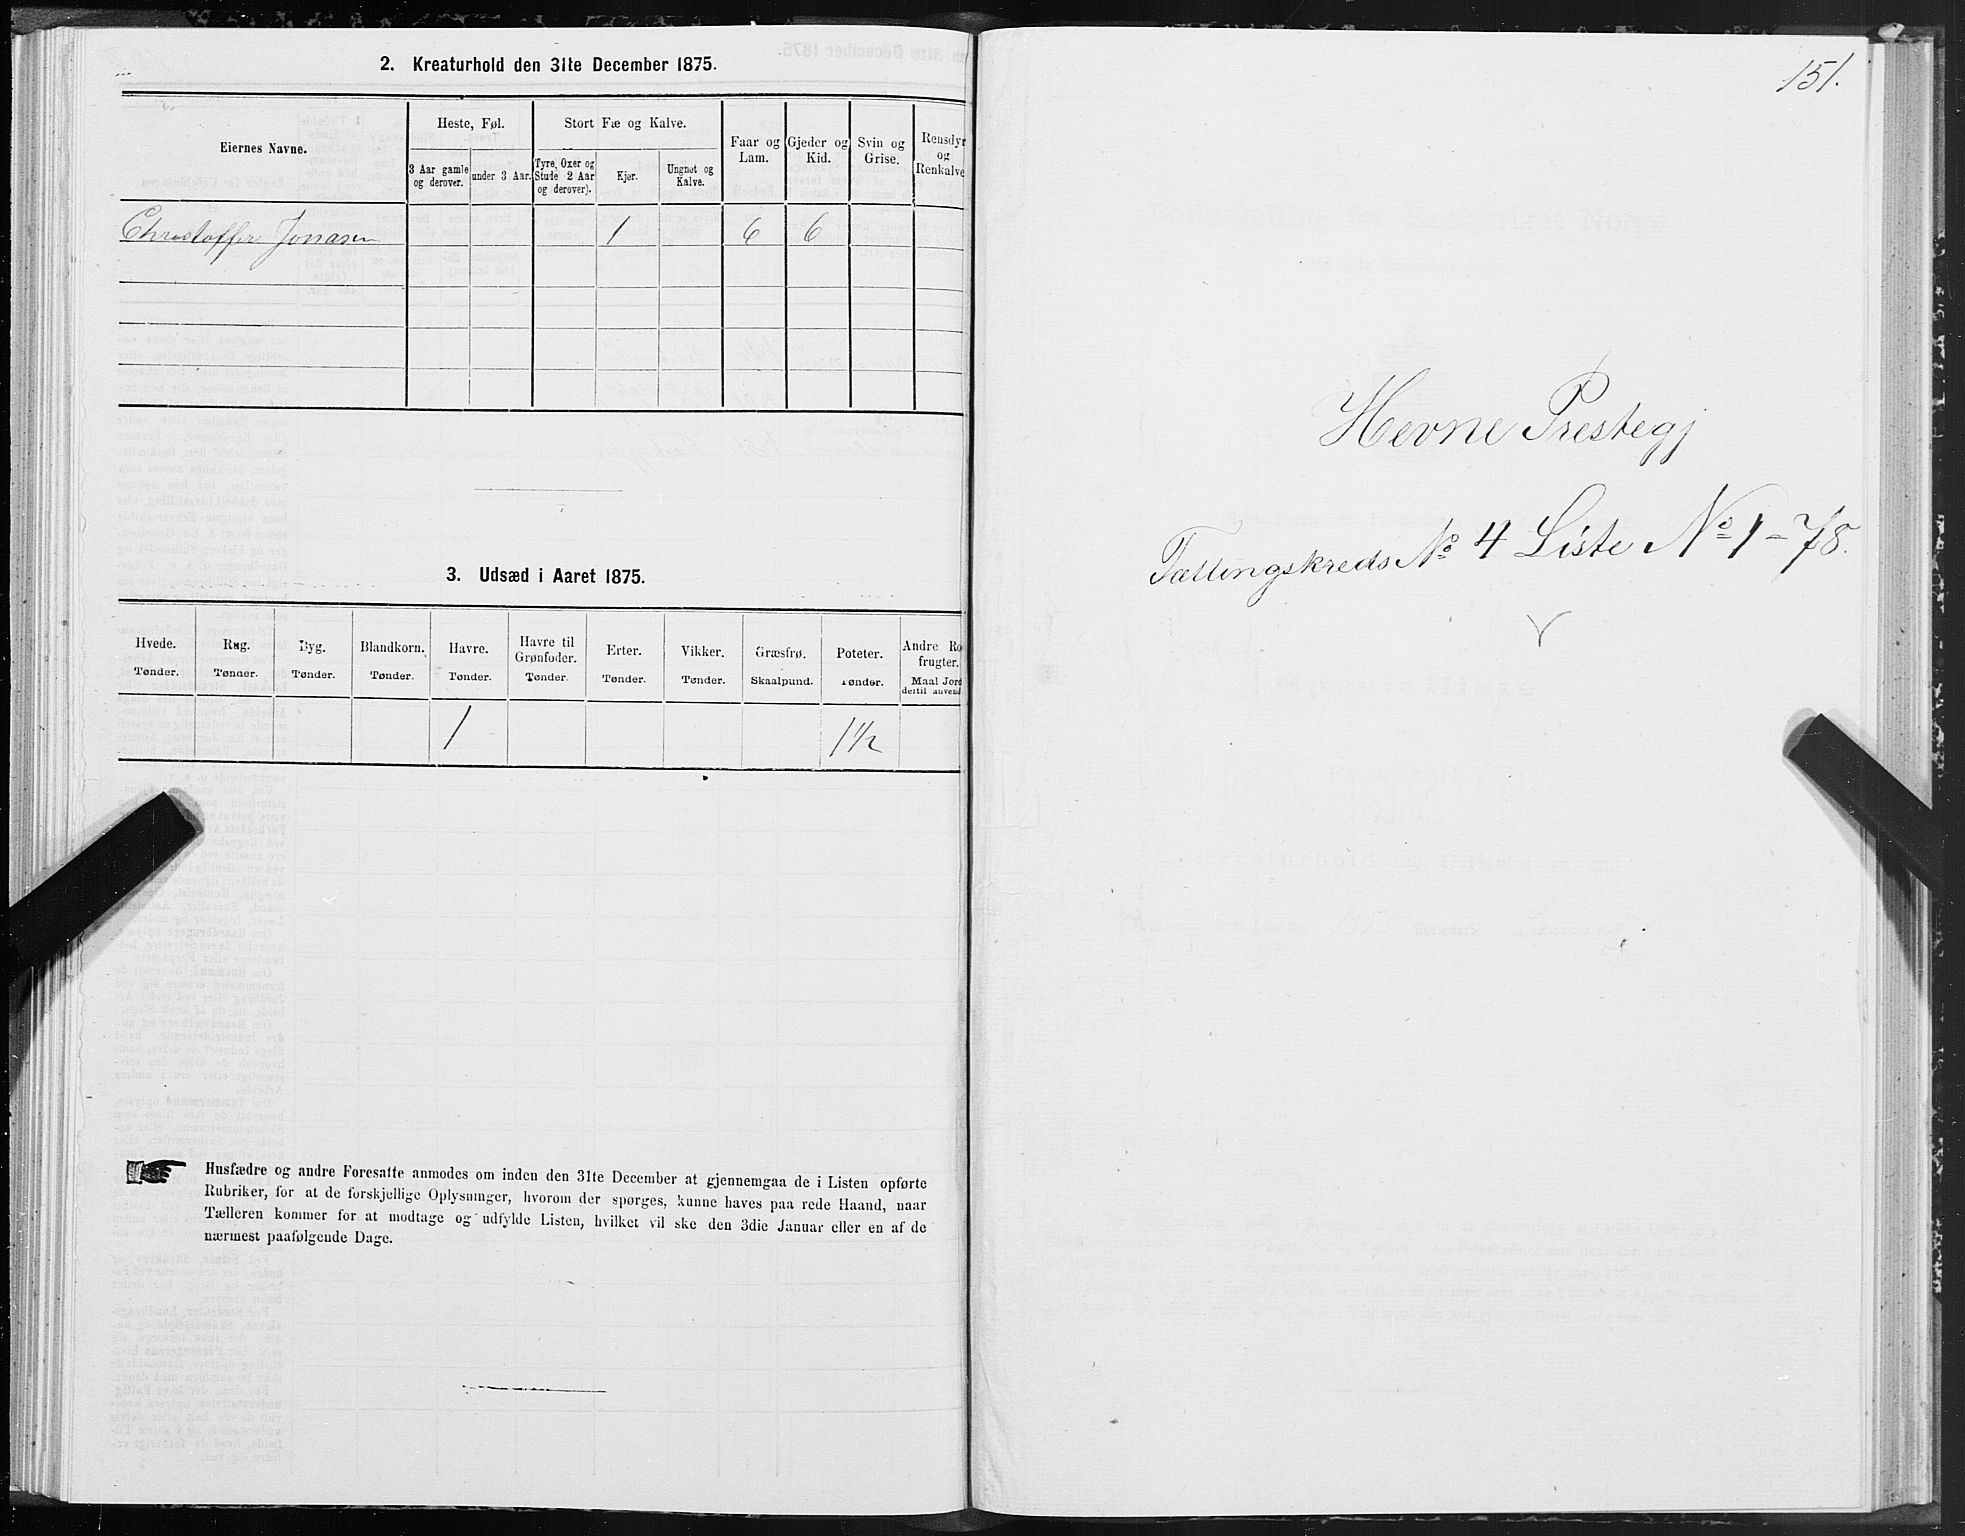 2. Kreaturhold den 31te December 1875.
Eiernes Navne.
Heste, Føl.
Stort Fæ og Kalve.
Faar og Lam.
Gjeder og Kid.
Svin og Grise.
Rensdyr og Renkalve
3 Aar gamle og derover.
under 3 Aar.
Tyre, Oxer og Stude 2 Aar og derover).
Kjør.
Ungnøt og Kalve.
Christoffer Jonasen 1 6 6
3. Udsæd i Aaret 1875.
Hvede. Rug. Byg. Blandkorn. Havre. Havre til Grønfoder. Erter. Vikker. Græsfrø. Poteter. Andre Ro frugter.
Tønder. Tønder. Tønder. Tønder. Tønder. Tønder. Tønder. Tønder. Skaalpund. Tønder. Maal Jord dertil anvend
1 1 1/2
Husfædre og andre Foresatte anmodes om inden den 31te December at gjennemgaa de i Listen opførte
Rubriker, for at de forskjellige Oplysninger, hvorom der spørges, kunne haves paa rede Haand, naar
Tælleren kommer for at modtage og udfylde Listen, hvilket vil ske den 3die Januar eller en af de
nærmest paafølgende Dage.
151.
Hevne Prestegj
Tællingskreds No 4 Liste No 1-78.